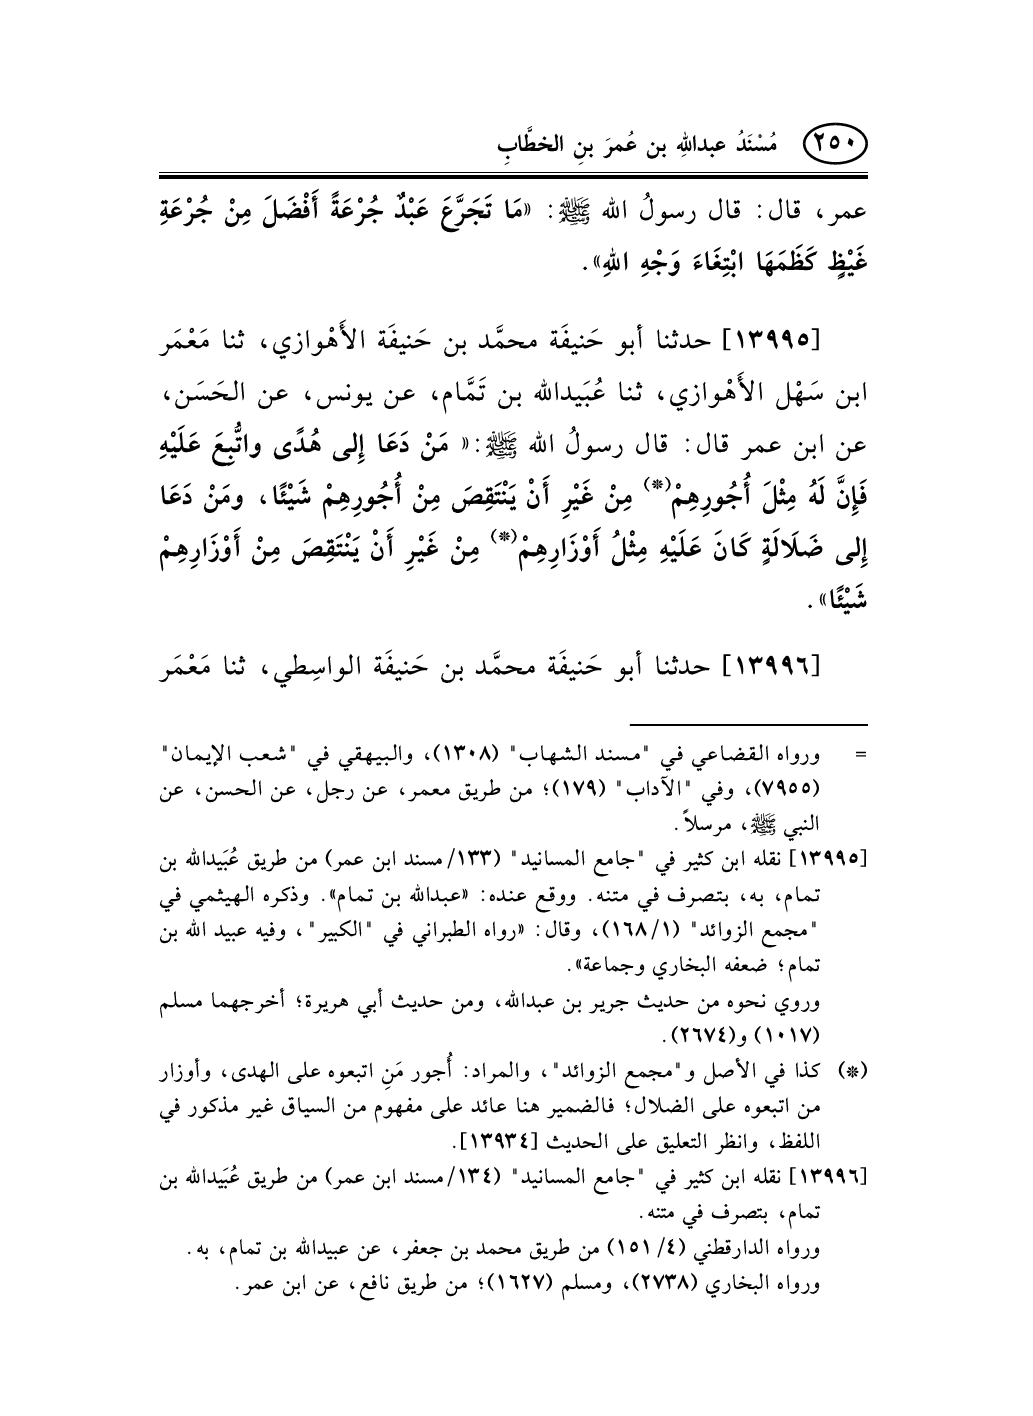 ٢٥٠ مُسْنَدُ عبداللهِ بن عُمرَ بنِ الخطَّابِ
عمر، قال: قال رسولُ الله ﷺ: «مَا تَجَرَّعَ عَبْدٌ جُرْعَةً أَفْضَلَ مِنْ جُرْعَةِ
غَيْظٍ كَظَمَهَا ابْتِغَاءَ وَجْهِ اللهِ».
[١٣٩٩٥] حدثنا أبو حَنيفَة محمَّد بن حَنيفَة الأَهْوازي، ثنا مَعْمَر
ابن سَهْل الأَهْوازي، ثنا عُبَيدالله بن تَمَّام، عن يونس، عن الحَسَن،
عن ابن عمر قال: قال رسولُ الله ﷺ:« مَنْ دَعَا إِلى هُدًى واتُّبِعَ عَلَيْهِ
فَإِنَّ لَهُ مِثْلَ أُجُورِهِمْ(*) مِنْ غَيْرِ أَنْ يَنْتَقِصَ مِنْ أُجُورِهِمْ شَيْئًا، ومَنْ دَعَا
إِلى ضَلَالَةٍ كَانَ عَلَيْهِ مِثْلُ أَوْزَارِهِمْ(*) مِنْ غَيْرِ أَنْ يَنْتَقِصَ مِنْ أَوْزَارِهِمْ
شَيْئًا».
[١٣٩٩٦] حدثنا أبو حَنيفَة محمَّد بن حَنيفَة الواسِطي، ثنا مَعْمَر
= ورواه القضاعي في "مسند الشهاب" (١٣٠٨)، والبيهقي في "شعب الإيمان"
(٧٩٥٥)، وفي "الآداب" (١٧٩)؛ من طريق معمر، عن رجل، عن الحسن، عن
النبي ﷺ، مرسلاً.
[١٣٩٩٥] نقله ابن كثير في "جامع المسانيد" (١٣٣/مسند ابن عمر) من طريق عُبَيدالله بن
تمام، به، بتصرف في متنه. ووقع عنده: «عبدالله بن تمام». وذكره الهيثمي في
"مجمع الزوائد" (١/١٦٨)، وقال: «رواه الطبراني في "الكبير"، وفيه عبيد الله بن
تمام؛ ضعفه البخاري وجماعة».
وروي نحوه من حديث جرير بن عبدالله، ومن حديث أبي هريرة؛ أخرجهما مسلم
(١٠١٧) و(٢٦٧٤).
(*) كذا في الأصل و"مجمع الزوائد"، والمراد: أُجور مَنِ اتبعوه على الهدى، وأوزار
من اتبعوه على الضلال؛ فالضمير هنا عائد على مفهوم من السياق غير مذكور في
اللفظ، وانظر التعليق على الحديث [١٣٩٣٤].
[١٣٩٩٦] نقله ابن كثير في "جامع المسانيد" (١٣٤/مسند ابن عمر) من طريق عُبَيدالله بن
تمام، بتصرف في متنه.
ورواه الدارقطني (٤/ ١٥١) من طريق محمد بن جعفر، عن عبيدالله بن تمام، به.
ورواه البخاري (٢٧٣٨)، ومسلم (١٦٢٧)؛ من طريق نافع، عن ابن عمر.